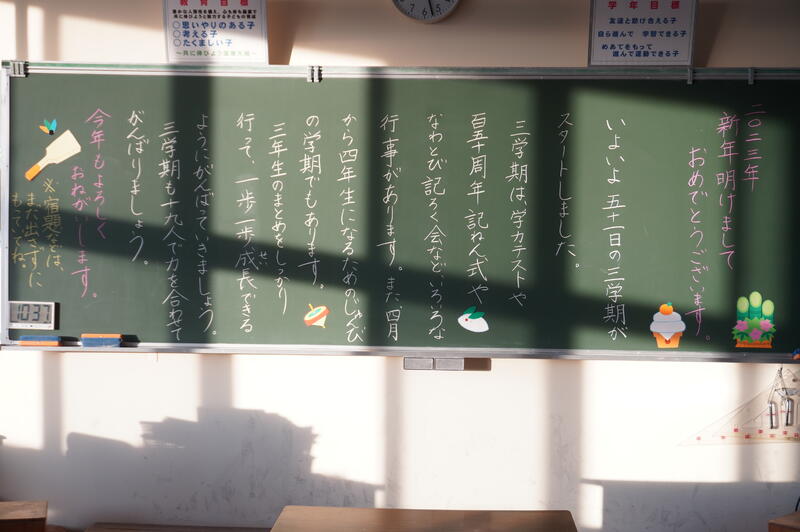 教育目標
豊かな人間性を備え、心も体も健康で
共に伸びようと努力する子どもの育成
○思いやりのある子
○考える子
○たくましい子
学年目標
友達と助け合える子
自ら進んで 学習できる子
めあてをもって
進んで運動できる子
二〇二三年
新年明けまして
おめでとうございます。
いよいよ五十一日の三学期が
スタートしました。
三学期は、学力テストや
百五十周年記ねん式や
なわとび記ろく会などいろいろな
行事があります。また、四月
から四年生になるためのじゅんび
の学期でもあります。
三年生のまとめをしっかり
行って、一歩一歩成長できる
せい
ようにがんばっていきましょう。
三学期も十九人で力を合わせて
がんばりましょう。
今年もよろしく
おねがいします。
※宿題などは、
まだ出さずに
もっててね。
10:37